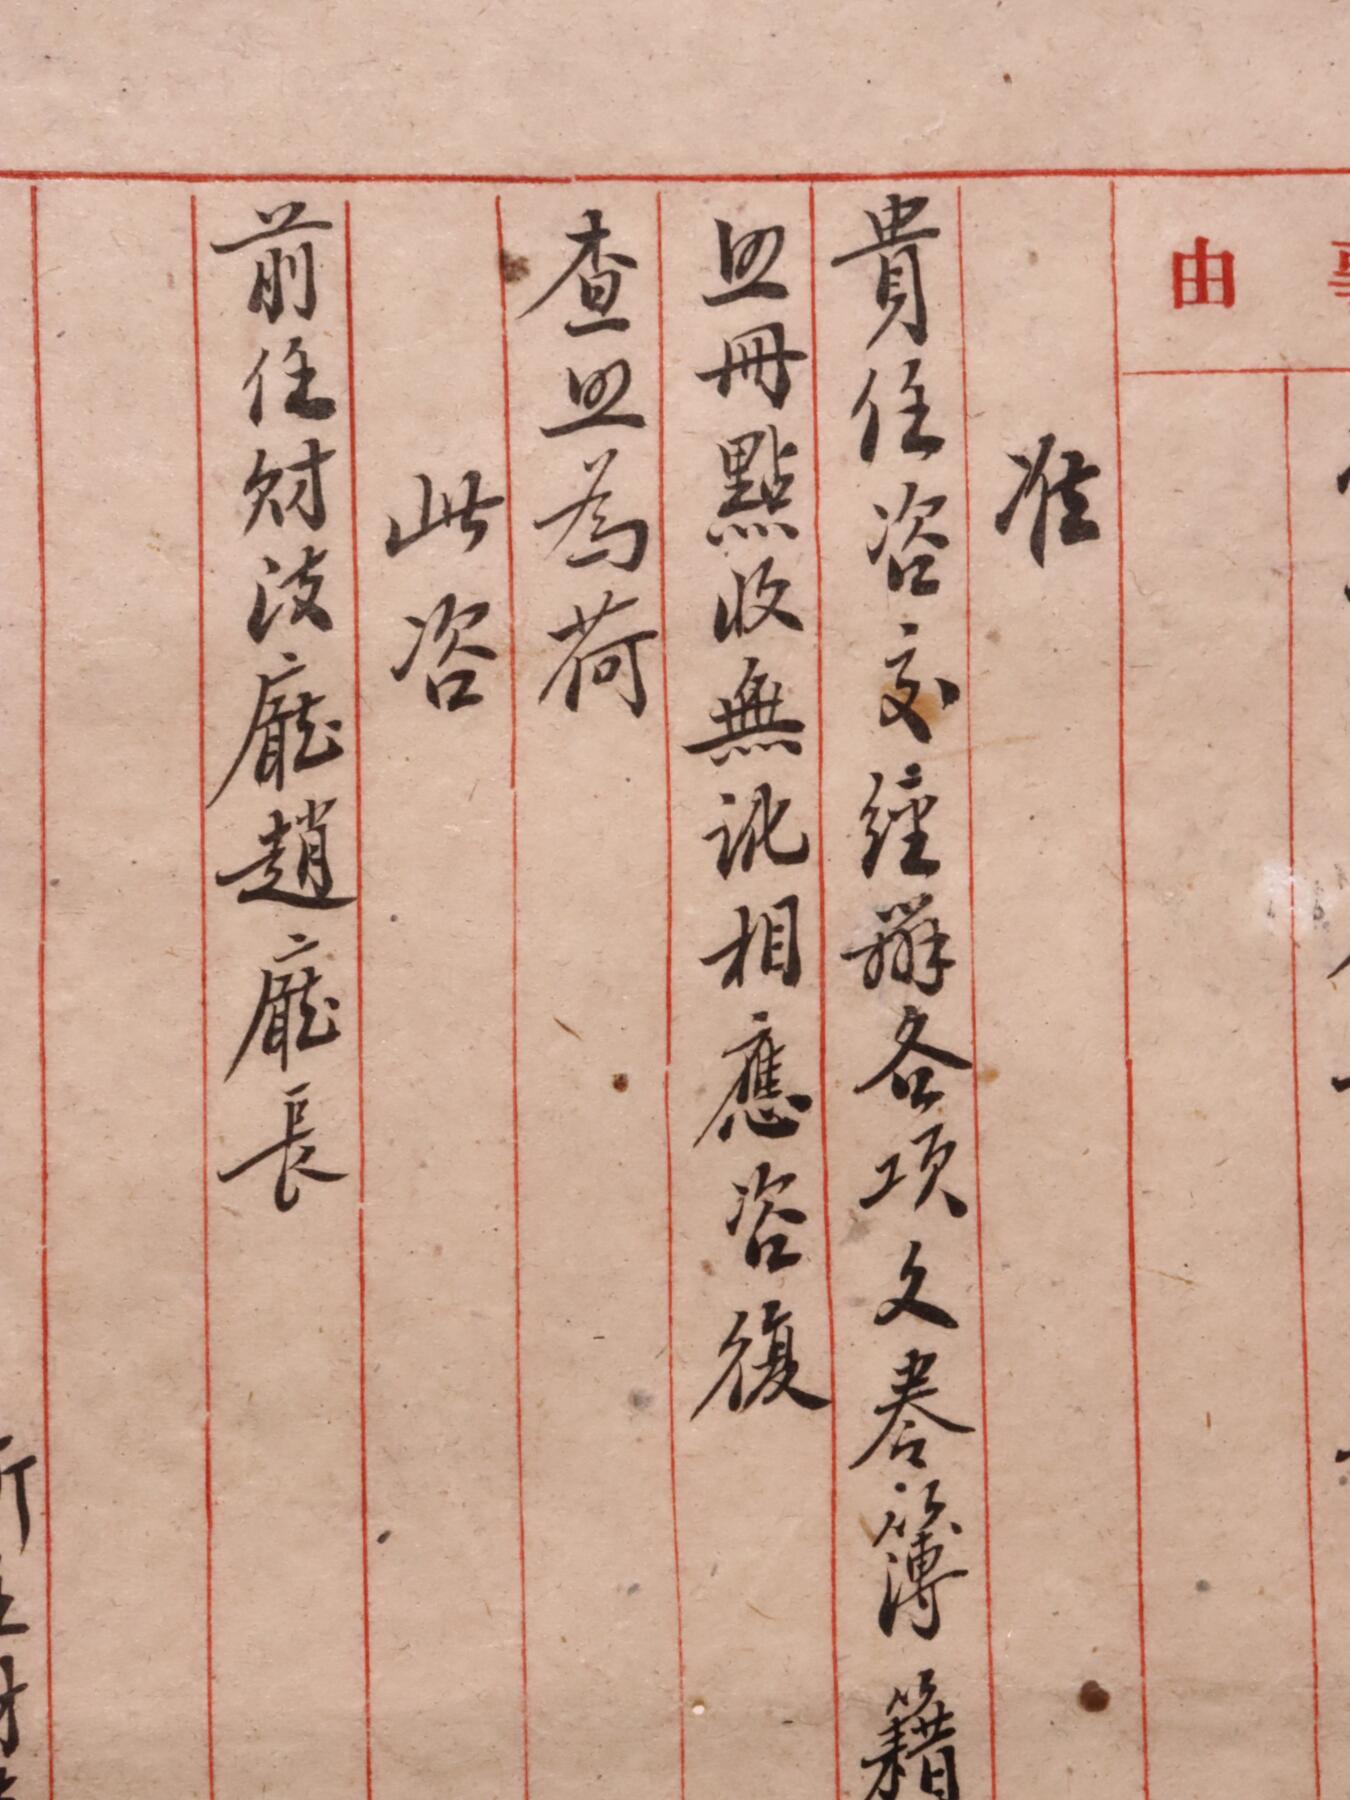 事由
准
貴任咨交經辦各項文卷簿籍
照冊點收無訛相應咨復
查照為荷
此咨
前任財政廳趙廳長
新任財